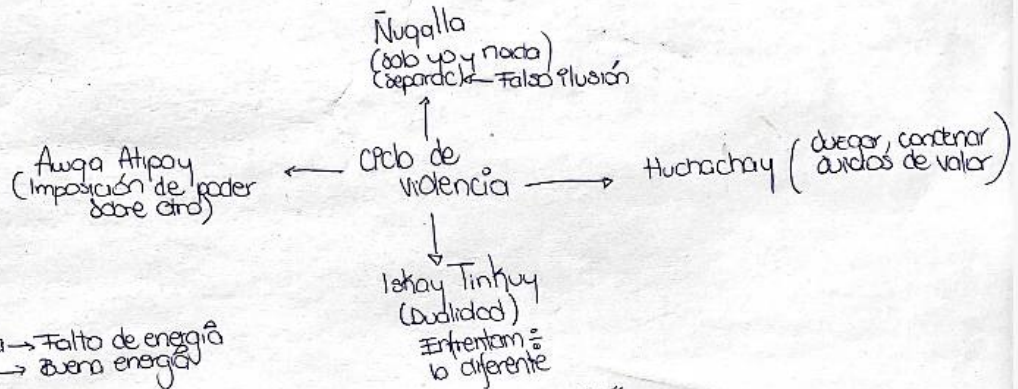 Ñuqalla
(solo yo y nada)
(separac) ← Falsa ilusión
Auqa Atipay
(Imposición de poder
sobre otro)
ciclo de
violencia
Huchachay (juzgar, condenar
juicios de valor)
Iskay Tinkuy
(Dualidad)
Enfrentam =
lo diferente
→ Falta de energía
→ Buena energía